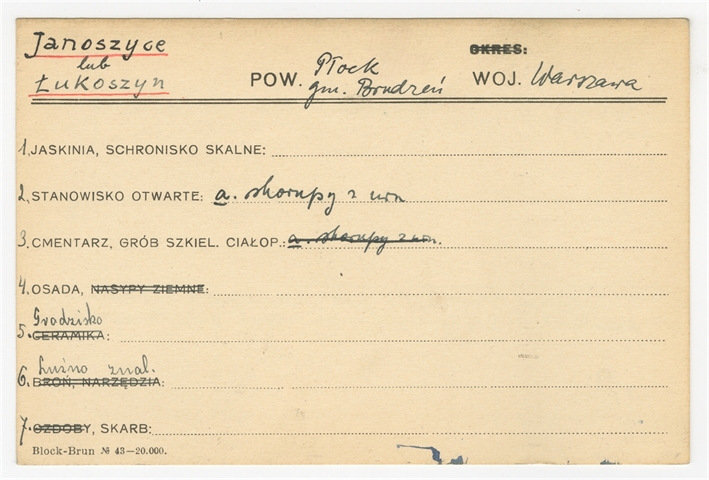 Janoszyce
lub
Łukoszyn
POW. Płock
gm. Brudzeń
OKRES:
WOJ. Warszawa
1. JASKINIA, SCHRONISKO SKALNE:
2. STANOWISKO OTWARTE: a. skorupy z urn
3. CMENTARZ, GRÓB SZKIEL. CIAŁOP.: a. skorupy z urn.
4. OSADA, NASYPY ZIEMNE:
Grodzisko
5. CERAMIKA:
Luźno znal.
6. BROŃ, NARZĘDZIA:
7. OZDOBY, SKARB:
Block-Brun № 43—20.000.